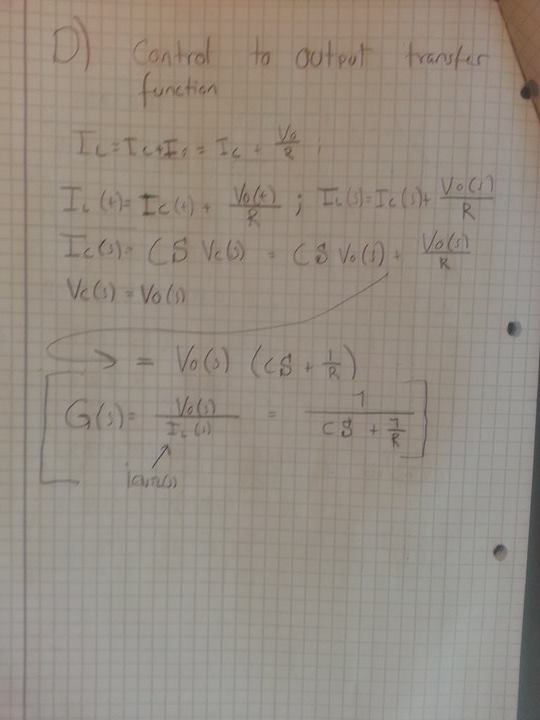 D) Control to output transfer
function
I_L = I_C + I_o = I_C + Vo/R ;
I_L(t) = I_C(t) + Vo(t)/R ; I_L(s) = I_C(s) + Vo(s)/R
I_C(s) = CS Vc(s) = CS Vo(s) + Vo(s)/R
Vc(s) = Vo(s)
→ = Vo(s) (CS + 1/R)
G(s) = Vo(s)/I_L(s) = 1/(CS + 1/R)